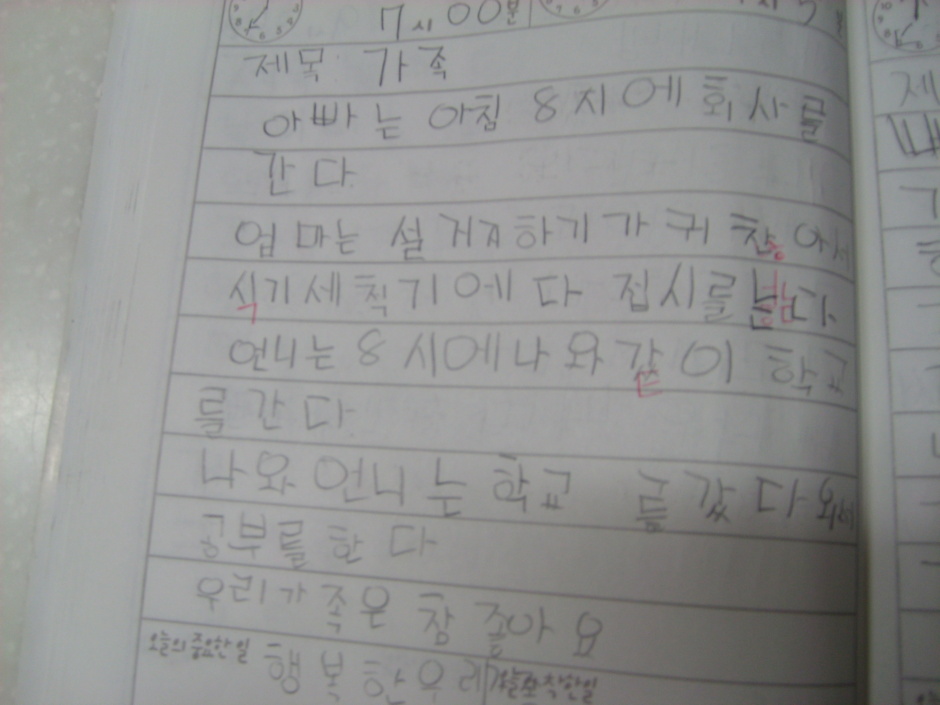 7시 00분
제목: 가족
아빠는 아침 8시에 회사를
간다
엄마는 설거지하기가 귀찮아서
식기세척기에다 접시를 넣는다
언니는 8시에 나와 같이 학교
를 간다
나와 언니는 학교를 갔다 와서
공부를 한다
우리가족은 참 좋아요
오늘의 중요한 일
행복한우리